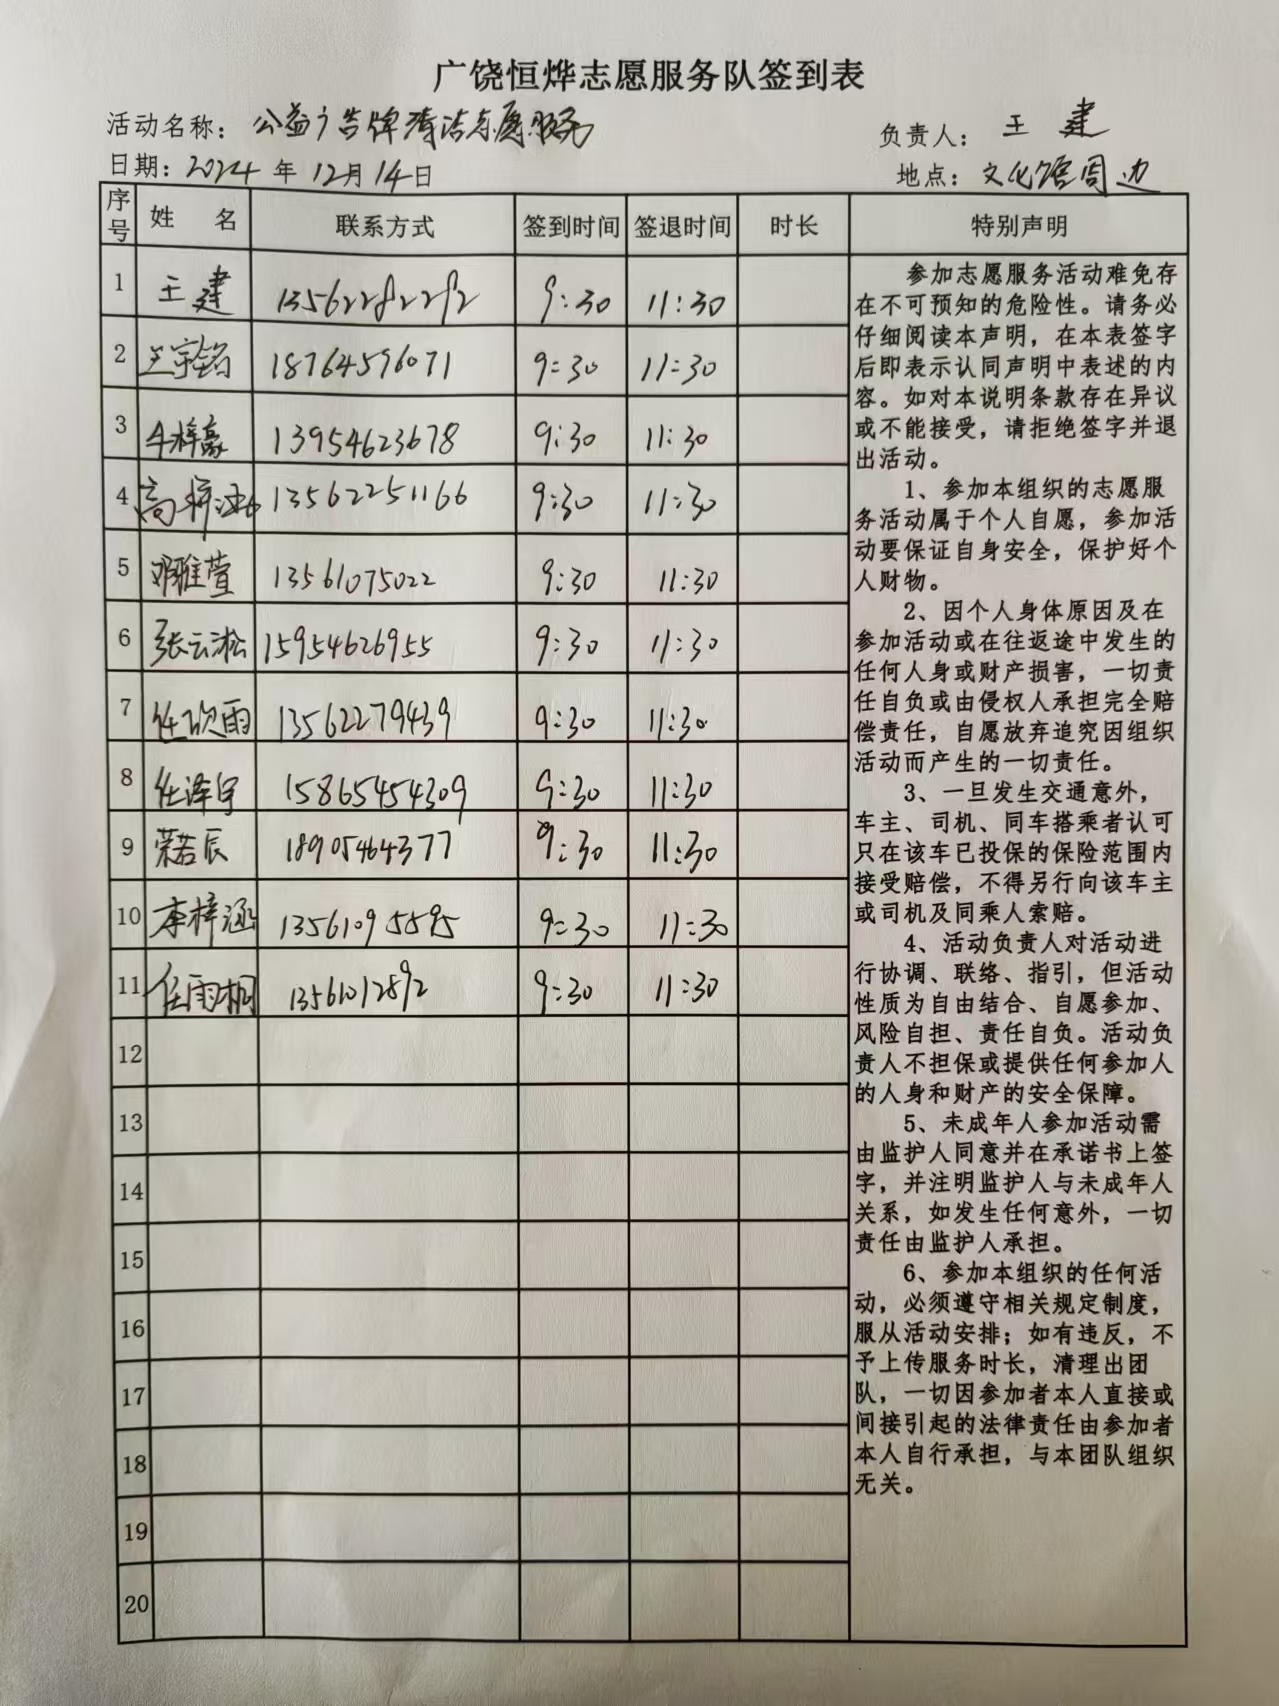 广饶恒烨志愿服务队签到表
活动名称：公益广告牌清洁志愿服务 负责人：王建
日期：2024年12月14日 地点：文化馆周边
序号 姓 名 联系方式 签到时间 签退时间 时长 特别声明
1 王建 13562282292 9:30 11:30
2 兰宇铭 18764596071 9:30 11:30
3 牛梓豪 13954623678 9:30 11:30
4 高梓 13562251166 9:30 11:30
5 邓雅萱 13561075022 9:30 11:30
6 张云淞 15954626955 9:30 11:30
7 任砍雨 13562279439 9:30 11:30
8 任泽宇 15865454309 9:30 11:30
9 荣若辰 18905464377 9:30 11:30
10 李梓涵 13561095595 9:30 11:30
11 任雨桐 13561012592 9:30 11:30
12
13
14
15
16
17
18
19
20
参加志愿服务活动难免存
在不可预知的危险性。请务必
仔细阅读本声明，在本表签字
后即表示认同声明中表述的内
容。如对本说明条款存在异议
或不能接受，请拒绝签字并退
出活动。
1、参加本组织的志愿服
务活动属于个人自愿，参加活
动要保证自身安全，保护好个
人财物。
2、因个人身体原因及在
参加活动或在往返途中发生的
任何人身或财产损害，一切责
任自负或由侵权人承担完全赔
偿责任，自愿放弃追究因组织
活动而产生的一切责任。
3、一旦发生交通意外，
车主、司机、同车搭乘者认可
只在该车已投保的保险范围内
接受赔偿，不得另行向该车主
或司机及同乘人索赔。
4、活动负责人对活动进
行协调、联络、指引，但活动
性质为自由结合、自愿参加、
风险自担、责任自负。活动负
责人不担保或提供任何参加人
的人身和财产的安全保障。
5、未成年人参加活动需
由监护人同意并在承诺书上签
字，并注明监护人与未成年人
关系，如发生任何意外，一切
责任由监护人承担。
6、参加本组织的任何活
动，必须遵守相关规定制度，
服从活动安排；如有违反，不
予上传服务时长，清理出团
队，一切因参加者本人直接或
间接引起的法律责任由参加者
本人自行承担，与本团队组织
无关。